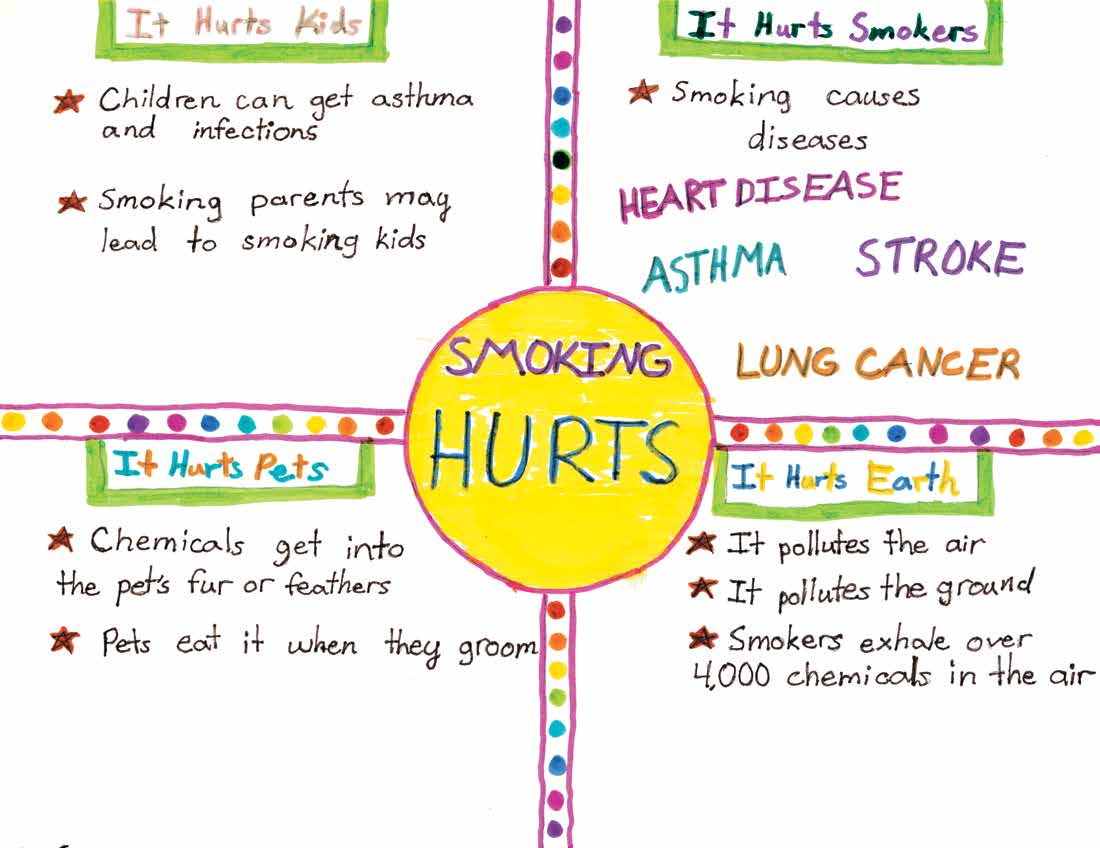 It Hurts Kids
Children can get asthma
and infections
Smoking parents may
lead to smoking kids
It Hurts Smokers
Smoking causes
diseases
HEART DISEASE
ASTHMA STROKE
LUNG CANCER
SMOKING
HURTS
It Hurts Pets
Chemicals get into
the pet's fur or feathers
Pets eat it when they groom
It Hurts Earth
It pollutes the air
It pollutes the ground
Smokers exhale over
4,000 chemicals in the air